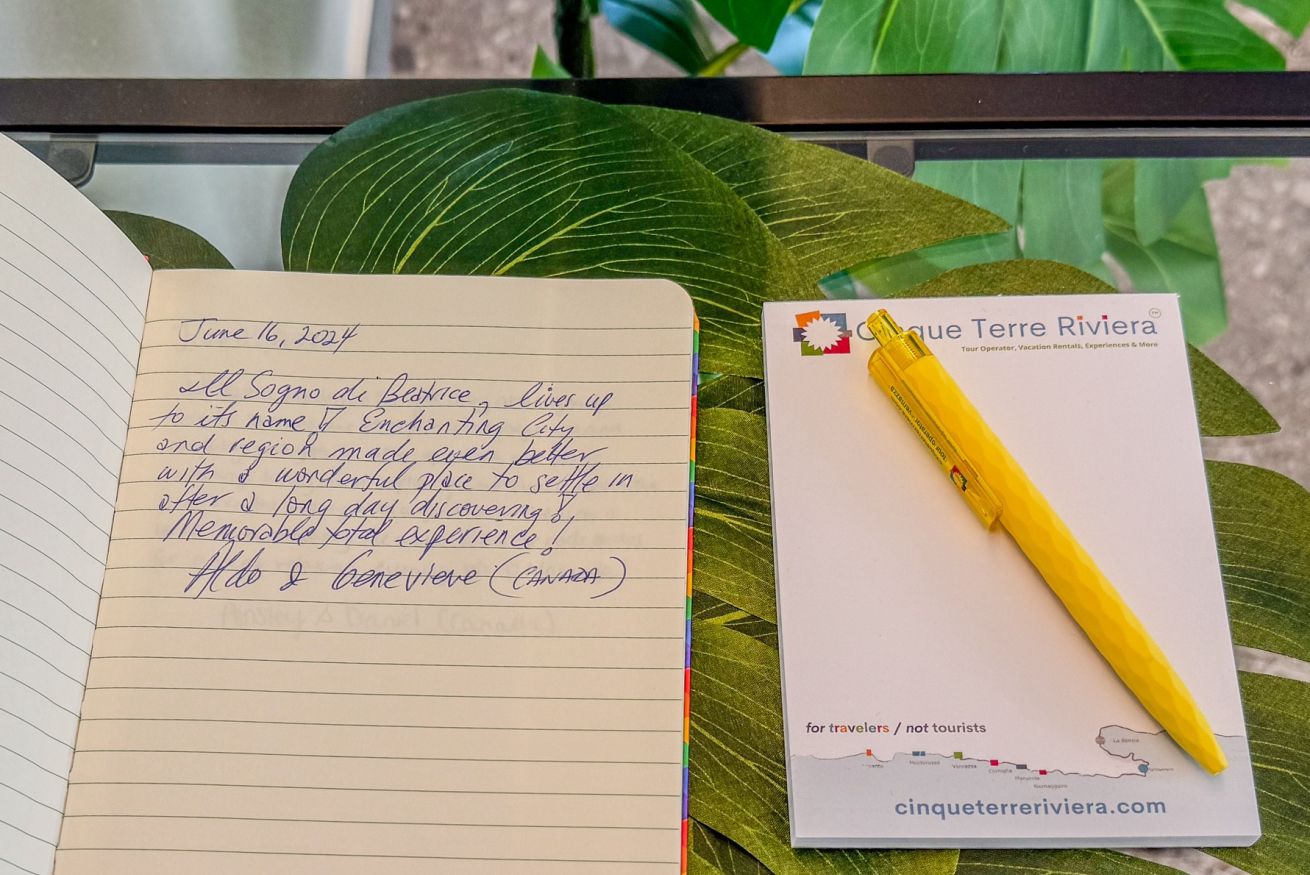 June 16, 2024
Il Sogno di Beatrice, lives up
to its name! Enchanting City
and region made even better
with a wonderful place to settle in
after a long day discovering!
Memorable total experience!
Aldo & Genevieve (CANADA)
Ainsley & Daniel (Canada)
Cinque Terre Riviera
Tour Operator, Vacation Rentals, Experiences & More
for travelers / not tourists
La Spezia
Monterosso
Vernazza
Corniglia
Manarola
Riomaggiore
Portovenere
cinqueterreriviera.com